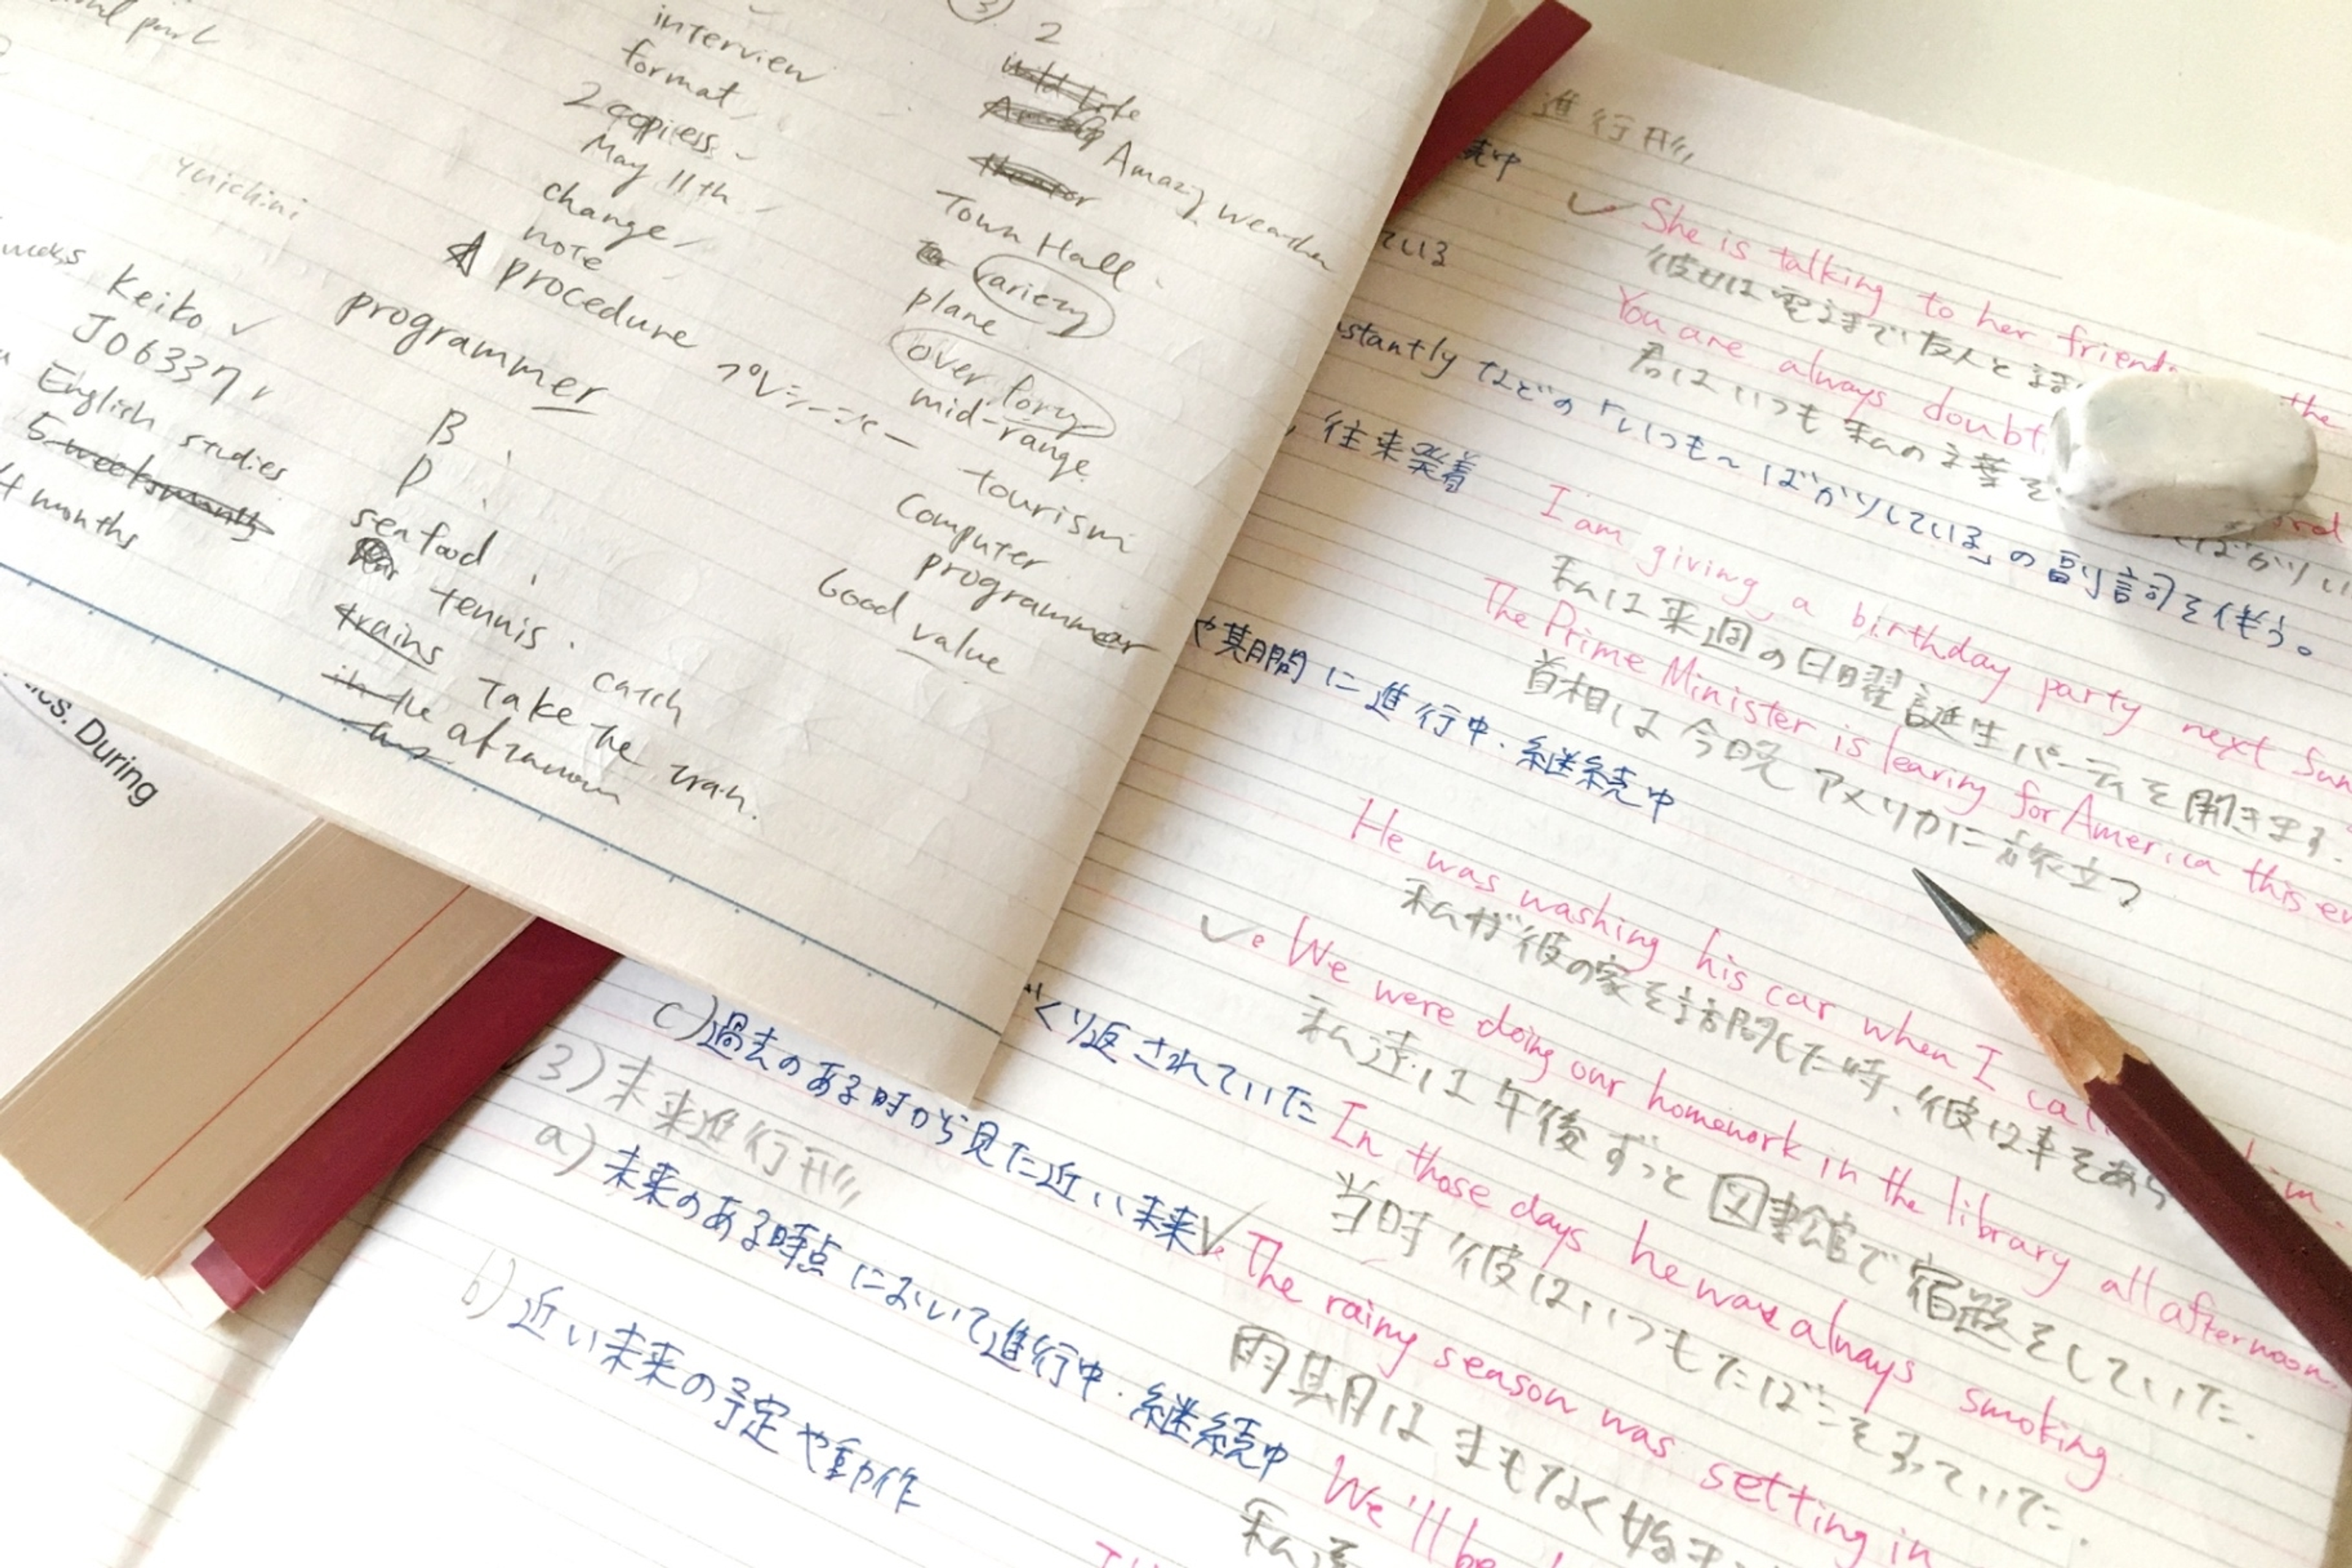 interview
format
2 copiess
May 11th
change
note
procedure
プロシージャー
programmer
B
P
seafood
tennis
trains
catch
Take the train.
in the
yuichini
weeks
Keiko
J06337
English studies
4 months
3
2
Amazing weather
Town Hall
variety
plane
over forty
mid-range
tourism
Computer
programmer
Good value
During
進行形
続中
ている
stantly などの「いつも~ばかりしている」の副詞を伴う。
往来発着
や期間に進行中・継続中
くり返されていた
c) 過去のある時から見た近い未来
3) 未来進行形
a) 未来のある時点において進行中・継続中
b) 近い未来の予定や動作
She is talking to her friend the
彼女は電話で友人と話
You are always doubt
君はいつも私の言葉を
ばかりい
I am giving a birthday party next Sun
私は来週の日曜誕生パーティを開きます
The Prime Minister is leaving for America this ev
首相は今晩アメリカに旅立つ
He was washing his car when I cal him.
私が彼の家を訪問した時、彼は車をあら
We were doing our homework in the library all afternoon.
私達は午後ずっと図書館で宿題をしていた.
In those days he was always smoking.
当時彼はいつもたばこをすっていた.
The rainy season was setting in
雨期はまもなく始ま
We'll be
私達